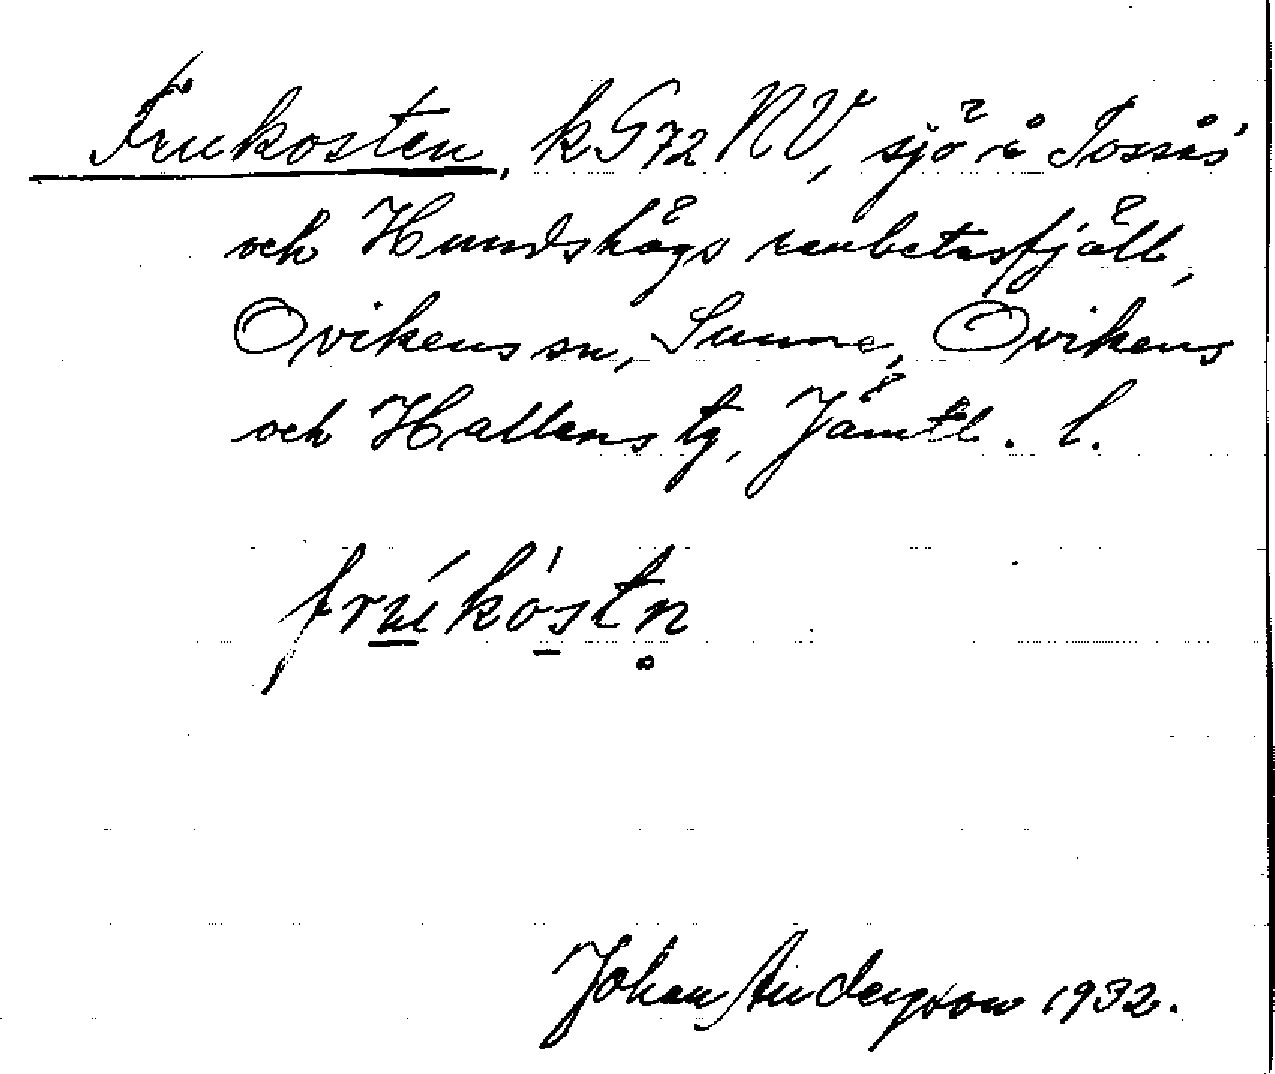 Frukosten, kG72 NV, sjö å Tossås'
och Hundshögs renbetesfjäll,
Ovikens sn, Sunne, Ovikens
och Hallens tg, Jämtl. l.
frúkòstn̥
Johan Anderson 1932.